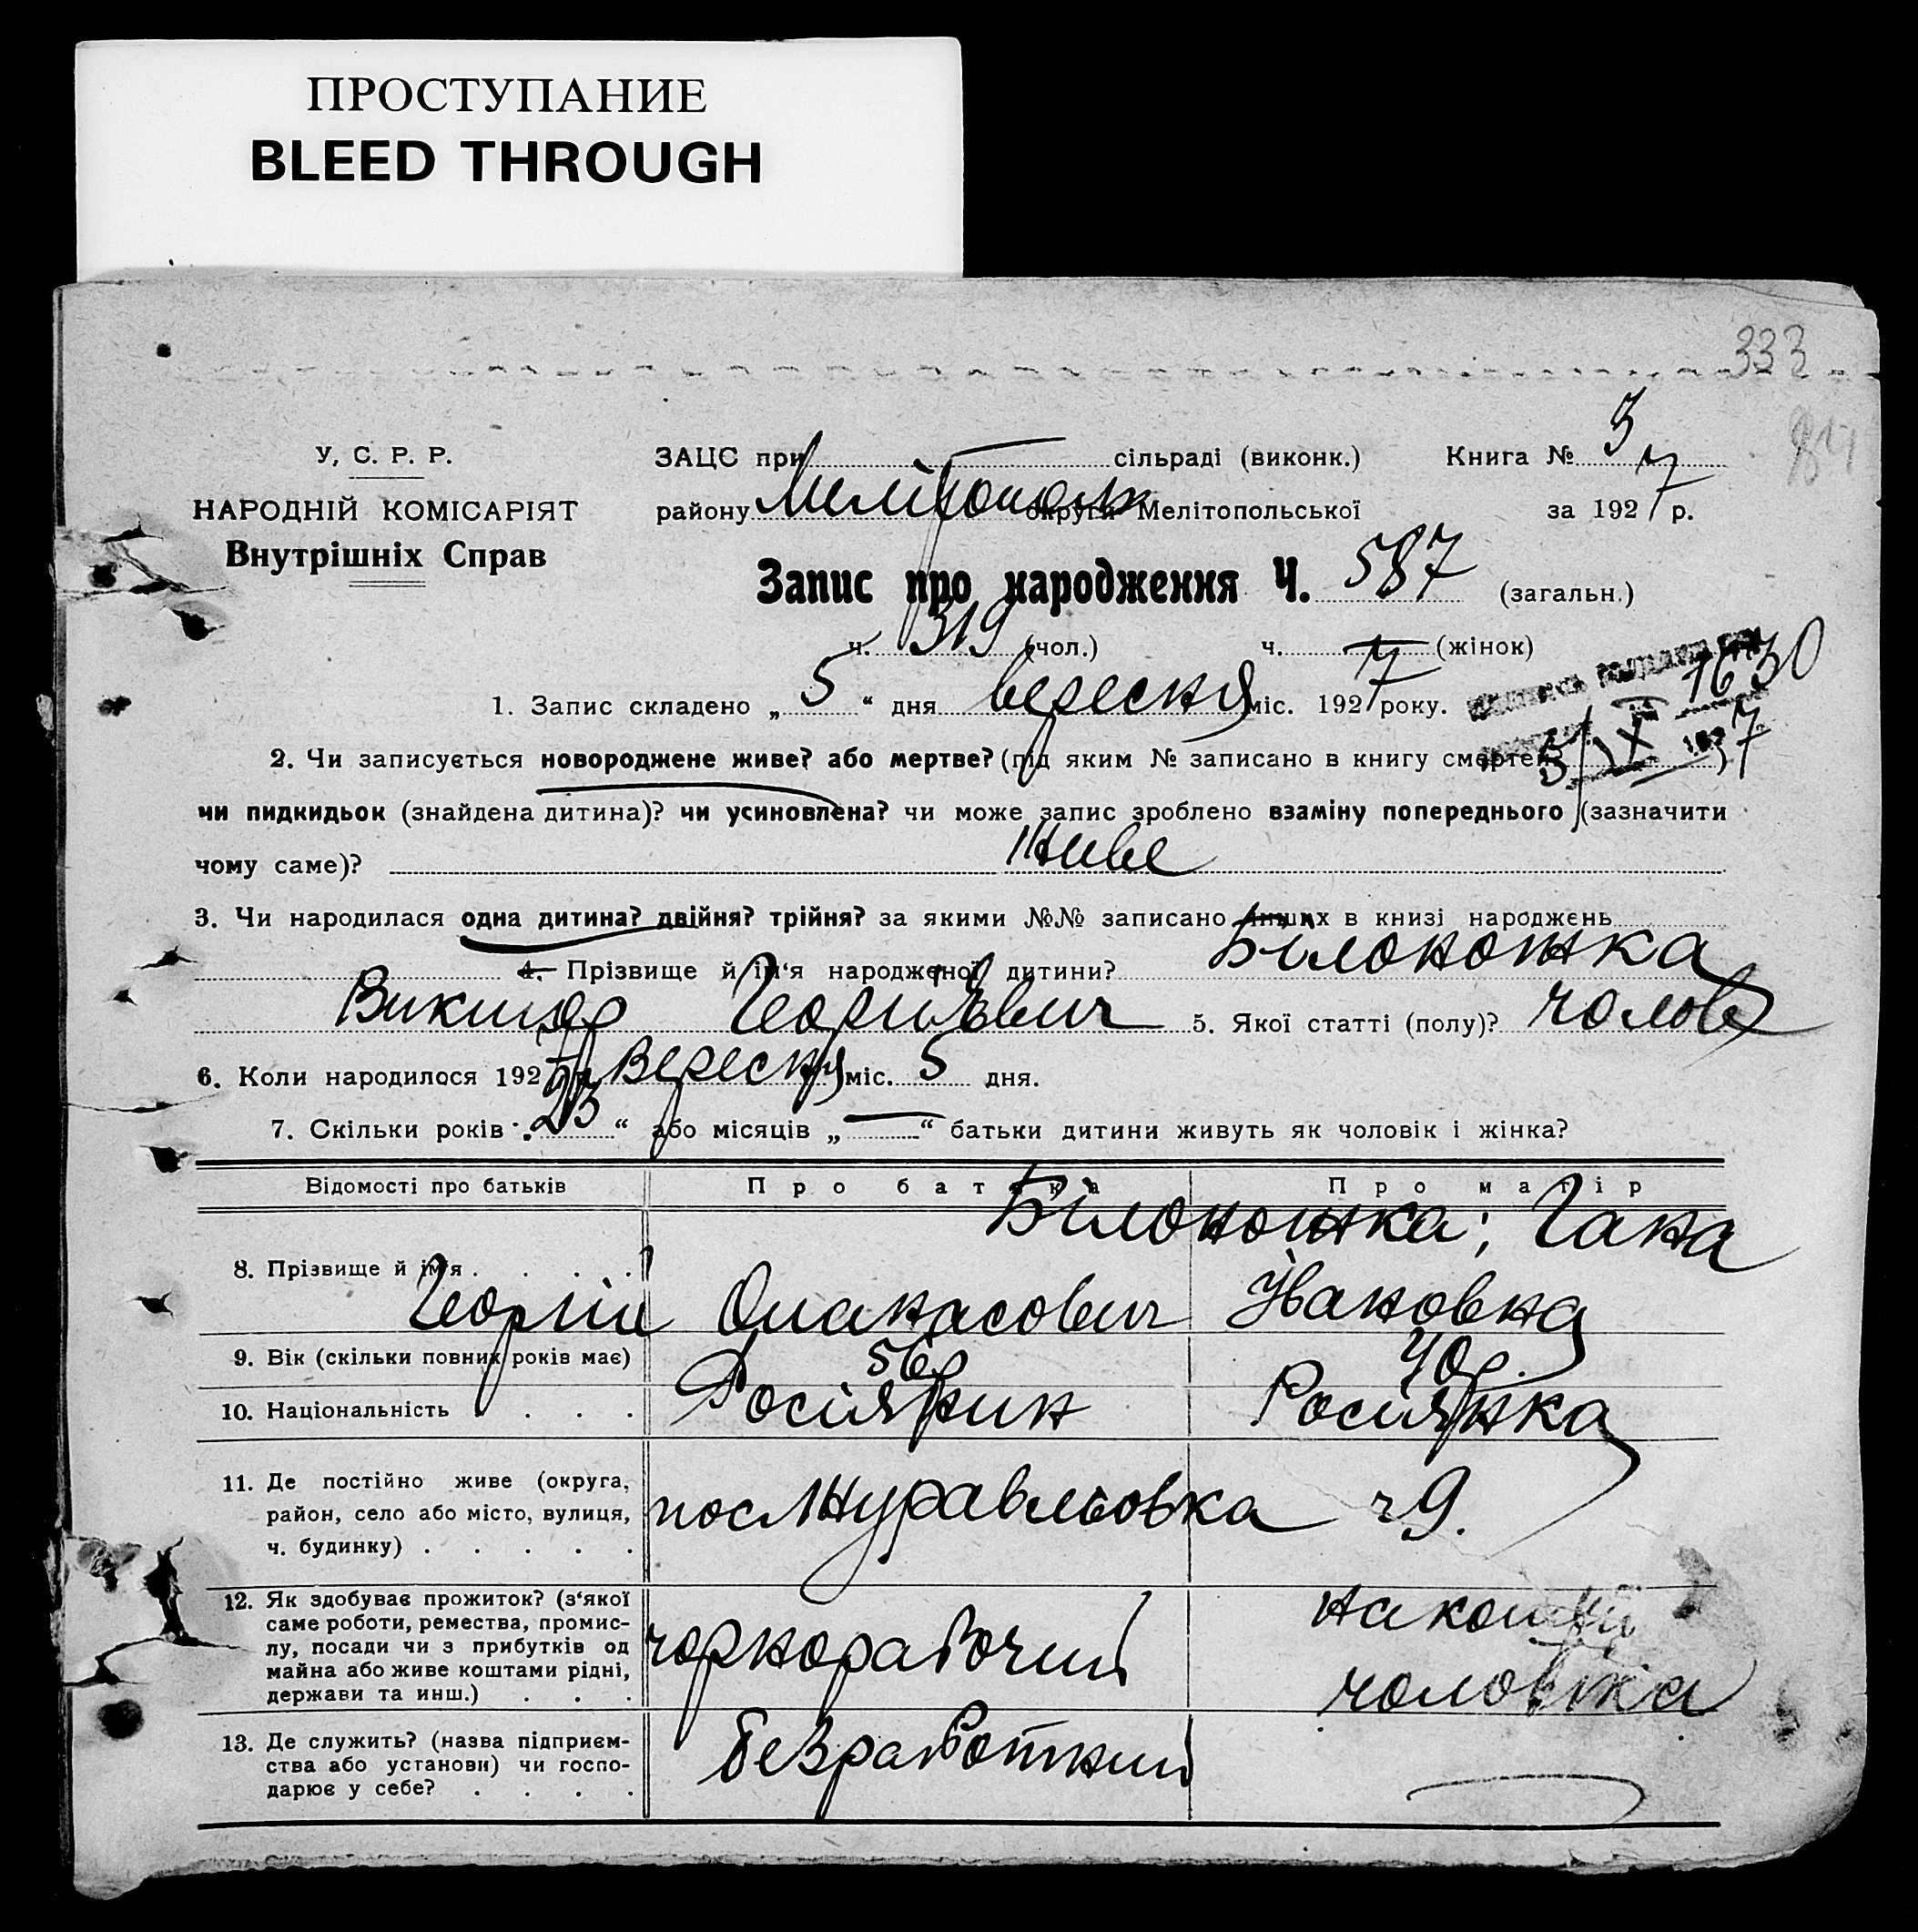 ПРОСТУПАНИЕ
BLEED THROUGH
333
У, С. Р. Р.
НАРОДНІЙ КОМІСАРІЯТ
Внутрішніх Справ
ЗАЦС при сільраді (виконк.) Книга № 3
району Мелітопольськ округи Мелітопольської за 1927 р.
Запис про народження Ч. 587 (загальн.)
ч. 319 (чол.) ч. — (жінок)
1630
1. Запис складено „ 5 “ дня вересня міс. 1927 року.
5/IX 1927
2. Чи записується новороджене живе? або мертве? (під яким № записано в книгу смертей )
чи пидкидьок (знайдена дитина)? чи усиновлена? чи може запис зроблено взаміну попереднього (зазначити
чому саме)? Живе
3. Чи народилася одна дитина? двійня? трійня? за якими №№ записано інших в книзі народжень
4. Прізвище й ім‘я народженої дитини? Білоножка
Виктор Георгієвич 5. Якої статті (полу)? чолов
6. Коли народилося 1927 р. Вересня міс. 5 дня.
7. Скільки років „ 23 “ або місяців „ — “ батьки дитини живуть як чоловік і жінка?
Відомості про батьків Про батька Про матір
Білоножка; Гана
8. Прізвище й ім‘я . . . . . Георгій Опанасович Івановна
9. Вік (скільки повних років має) 56р 40р.
10. Національність . . . . Росіянин Росіянка
11. Де постійно живе (округа,
район, село або місто, вулиця,
ч. будинку) . . . . .
пос Журавльовка ч 9.
12. Як здобуває прожиток? (з‘якої
саме роботи, ремества, промис-
лу, посади чи з прибутків од
майна або живе коштами рідні,
держави та инш.) . . .
чорнорабочий
на кошти
чоловіка
13. Де служить? (назва підприєм-
ства або установи) чи госпо-
дарює у себе? . . . .
безработний